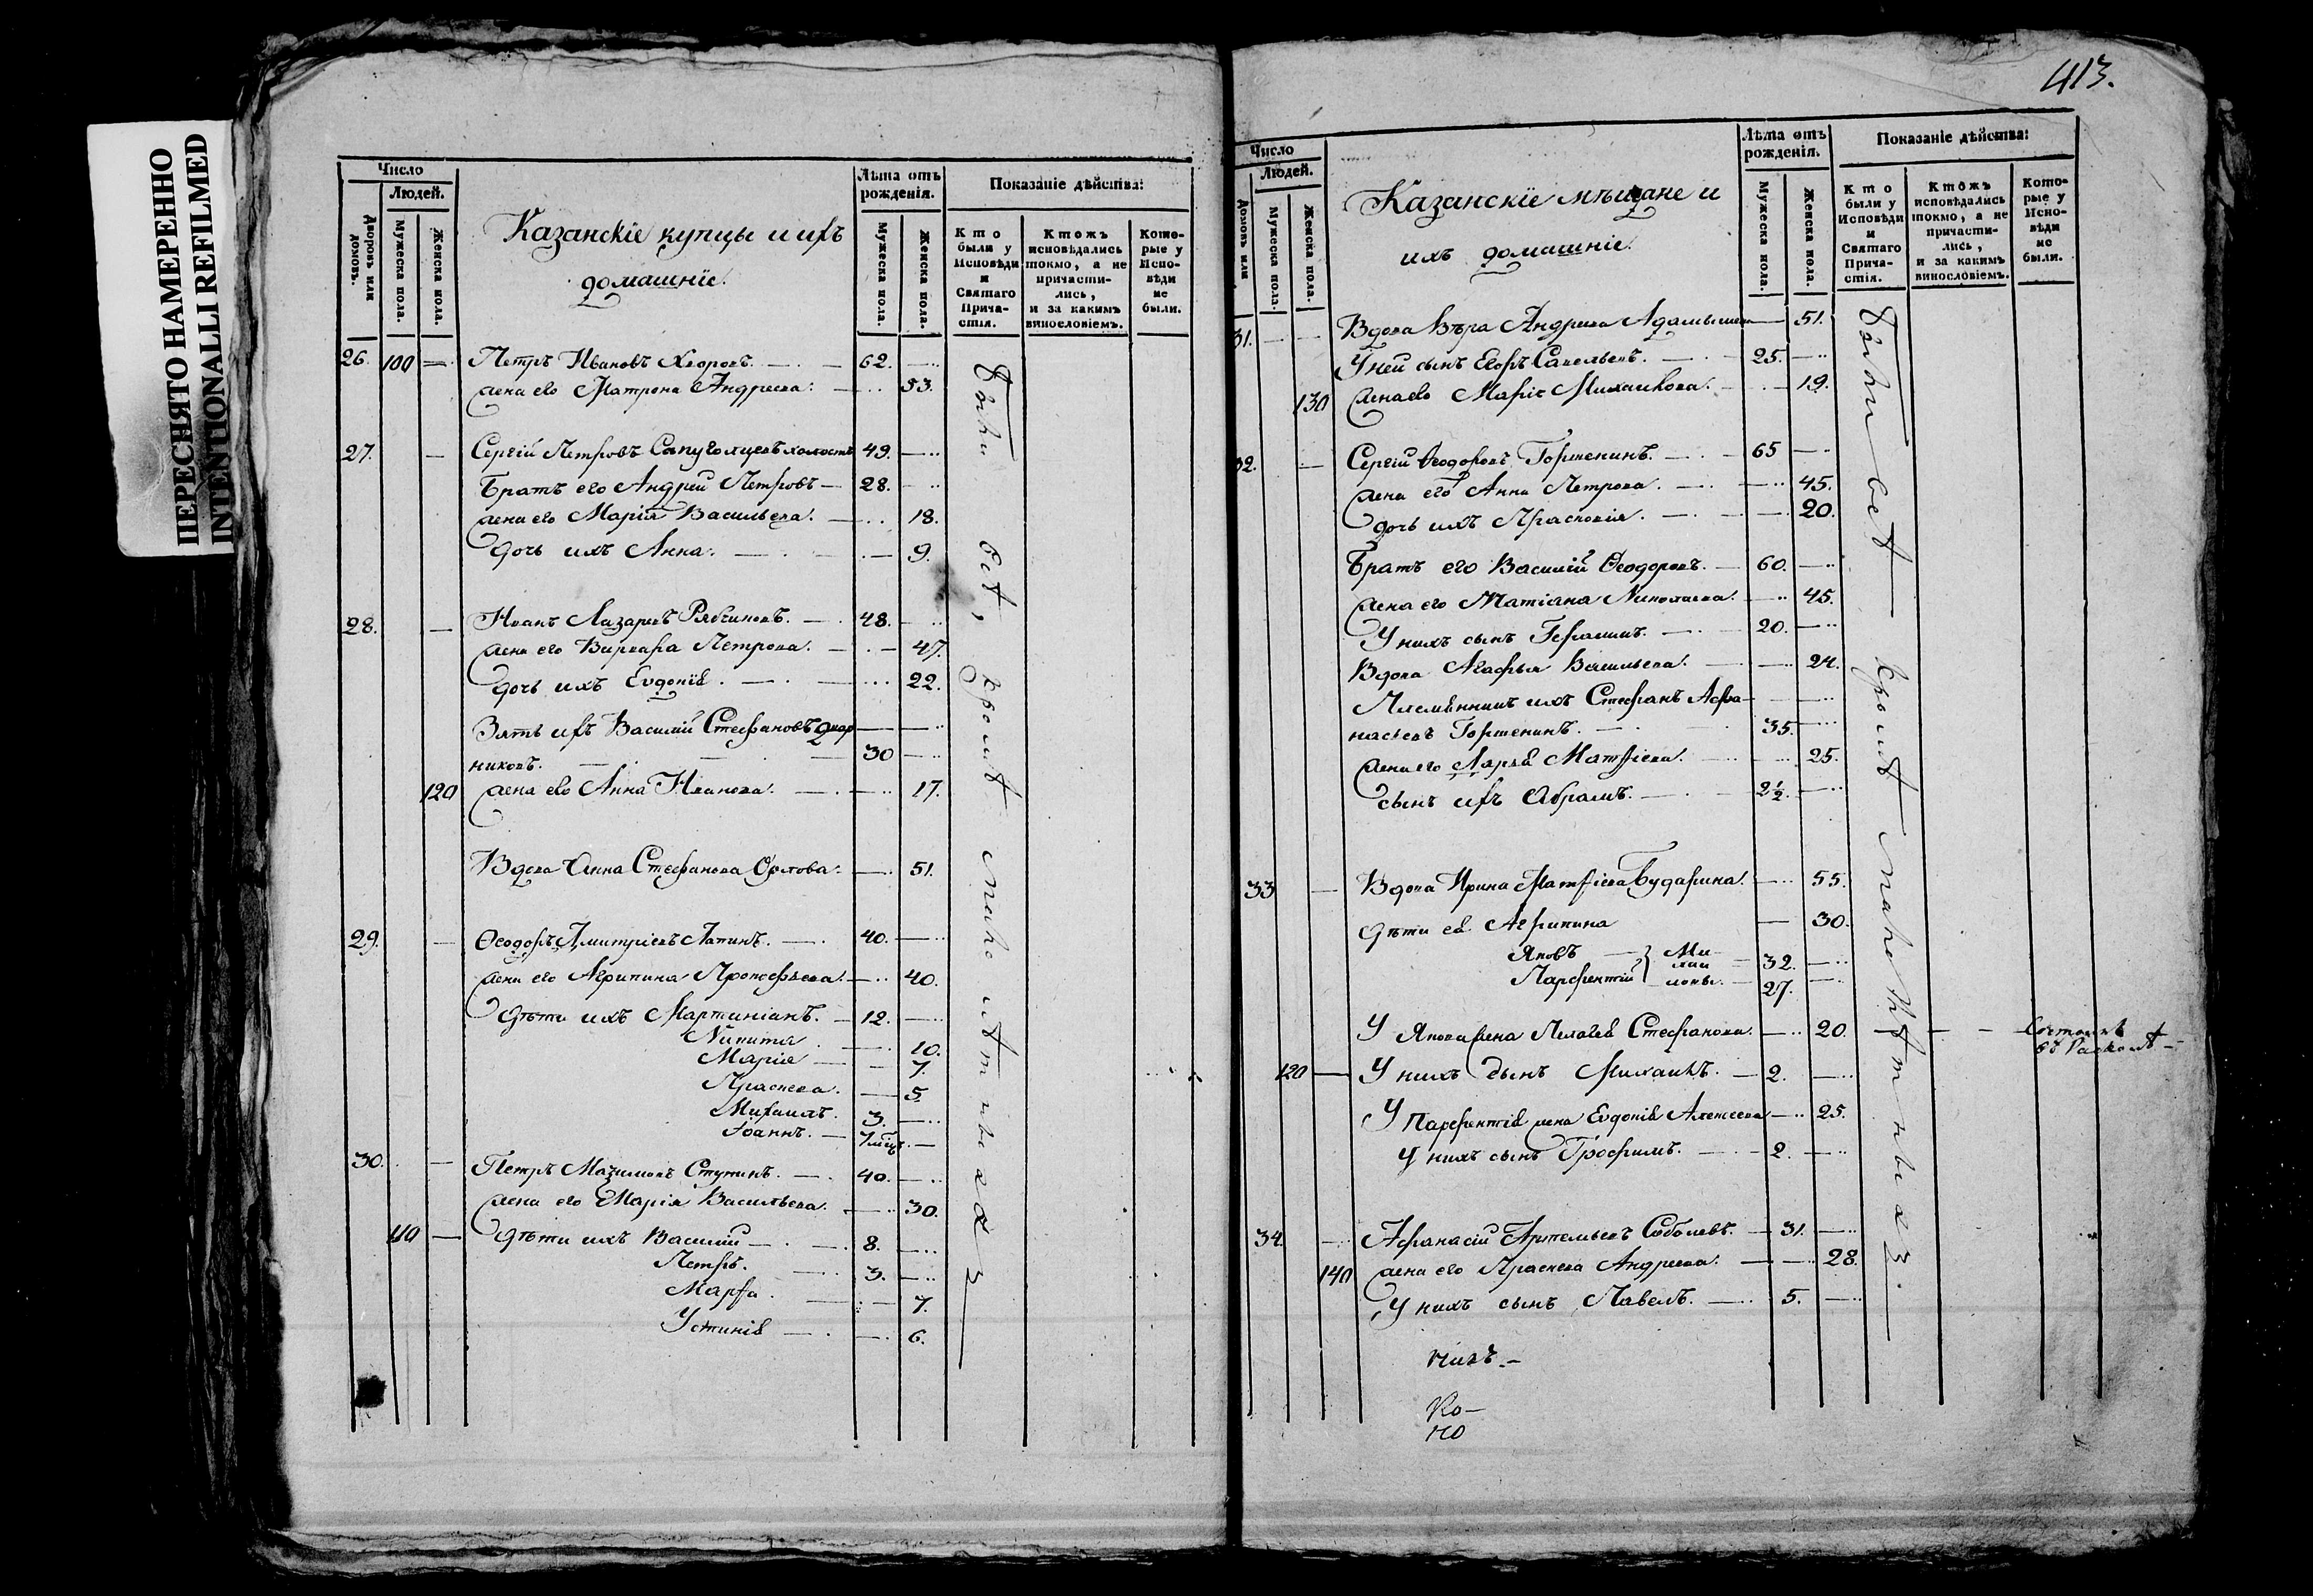 ПЕРЕСНЯТО НАМЕРЕННО
INTENTIONALLI REFILMED
Число
Людей.
Дворовъ или домовъ.
Мужеска пола.
Женска пола.
Казанскіе купцы и ихъ
домашніе.
Лѣта отъ
рожденія.
Мужеска пола.
Женска пола.
Показаніе дѣйства:
Кто
были у
Исповѣди
и
Святаго
Прича-
стія.
Ктожъ
исповѣдались
токмо, а не
причасти-
лись,
и за какимъ
винословіемъ.
Кото-
рые у
Испо-
вѣди
не
были.
26. 100 Петръ Ивановъ 62.
жена его Матрона Андреева. 53.
27. Сергій Петровъ холостъ 49.
Братъ его Андрей Петровъ 28.
жена его Марія Васильева. 18.
дочь ихъ Анна. 9.
28. Иванъ Лазаревъ Рябчиковъ. 48.
жена его Варвара Петрова. 47.
дочь ихъ Евдокія. 22.
Зять ихъ Василій Стефановъ
никовъ. 30
120 жена его Анна Иванова. 17.
Вдова Анна Стефанова Орлова. 51.
29. Ѳеодоръ Дмитріевъ Лапинъ. 40.
жена его Агрипина Прокофьева. 40.
дѣти ихъ Мартиніанъ. 12.
Никита. 10.
Марія 7.
Праскева. 5.
Михаилъ. 3.
Іоаннъ. 7 мѣц.
30. Петръ Ступинъ. 40.
жена его Марія Васильева. 30.
110 дѣти ихъ Василій 8.
Петръ. 3.
Марѳа. 7.
Устинія 6.
были всѣ, кромѣ
413.
Число
Людей.
Домовъ или
Мужеска пола.
Женска пола.
Казанскіе мѣщане и
ихъ домашніе.
Лѣта отъ
рожденія.
Мужеска пола.
Женска пола.
Показаніе дѣйства:
Кто
были у
Исповѣди
и
Святаго
Прича-
стія.
Ктожъ
исповѣдались
токмо, а не
причасти-
лись,
и за какимъ
винословіемъ.
Кото-
рые у
Испо-
вѣди
не
были.
31. Вдова Вѣра Андреева 51.
У ней сынъ Егоръ Савельевъ. 25.
130 жена его Марія Михайлова. 19.
32. Сергій Ѳеодоровъ Горшенинъ. 65
жена его Анна Петрова. 45.
дочь ихъ Прасковія. 20.
Братъ его Василій Ѳеодоровъ. 60.
жена его Татіана Николаева. 45.
У нихъ сынъ Герасимъ. 20.
Вдова Агафья Васильева. 24.
Племянникъ ихъ Стефанъ Афа-
насьевъ Горшенинъ. 35.
жена его Дарья Матѳіева. 25.
сынъ ихъ Абрамъ. 2½.
33 Вдова Ирина Матѳіева Бударина. 55.
дѣти ея Агрипина 30.
Яковъ Ми- 32.
хай
Парфентій ловы. 27.
У Якова жена Пелагея Стефанова. 20. Состоитъ
въ Расколѣ
120 У нихъ сынъ Михаилъ. 2.
У Парфентія жена Евдокія Алексеева 25.
У нихъ сынъ Трофимъ. 2.
34. Афанасій Артемьевъ Соболевъ. 31.
140 жена его Праскева Андреева. 28.
У нихъ сынъ Павелъ. 5.
были всѣ кромѣ
нихъ.
Ко-
но